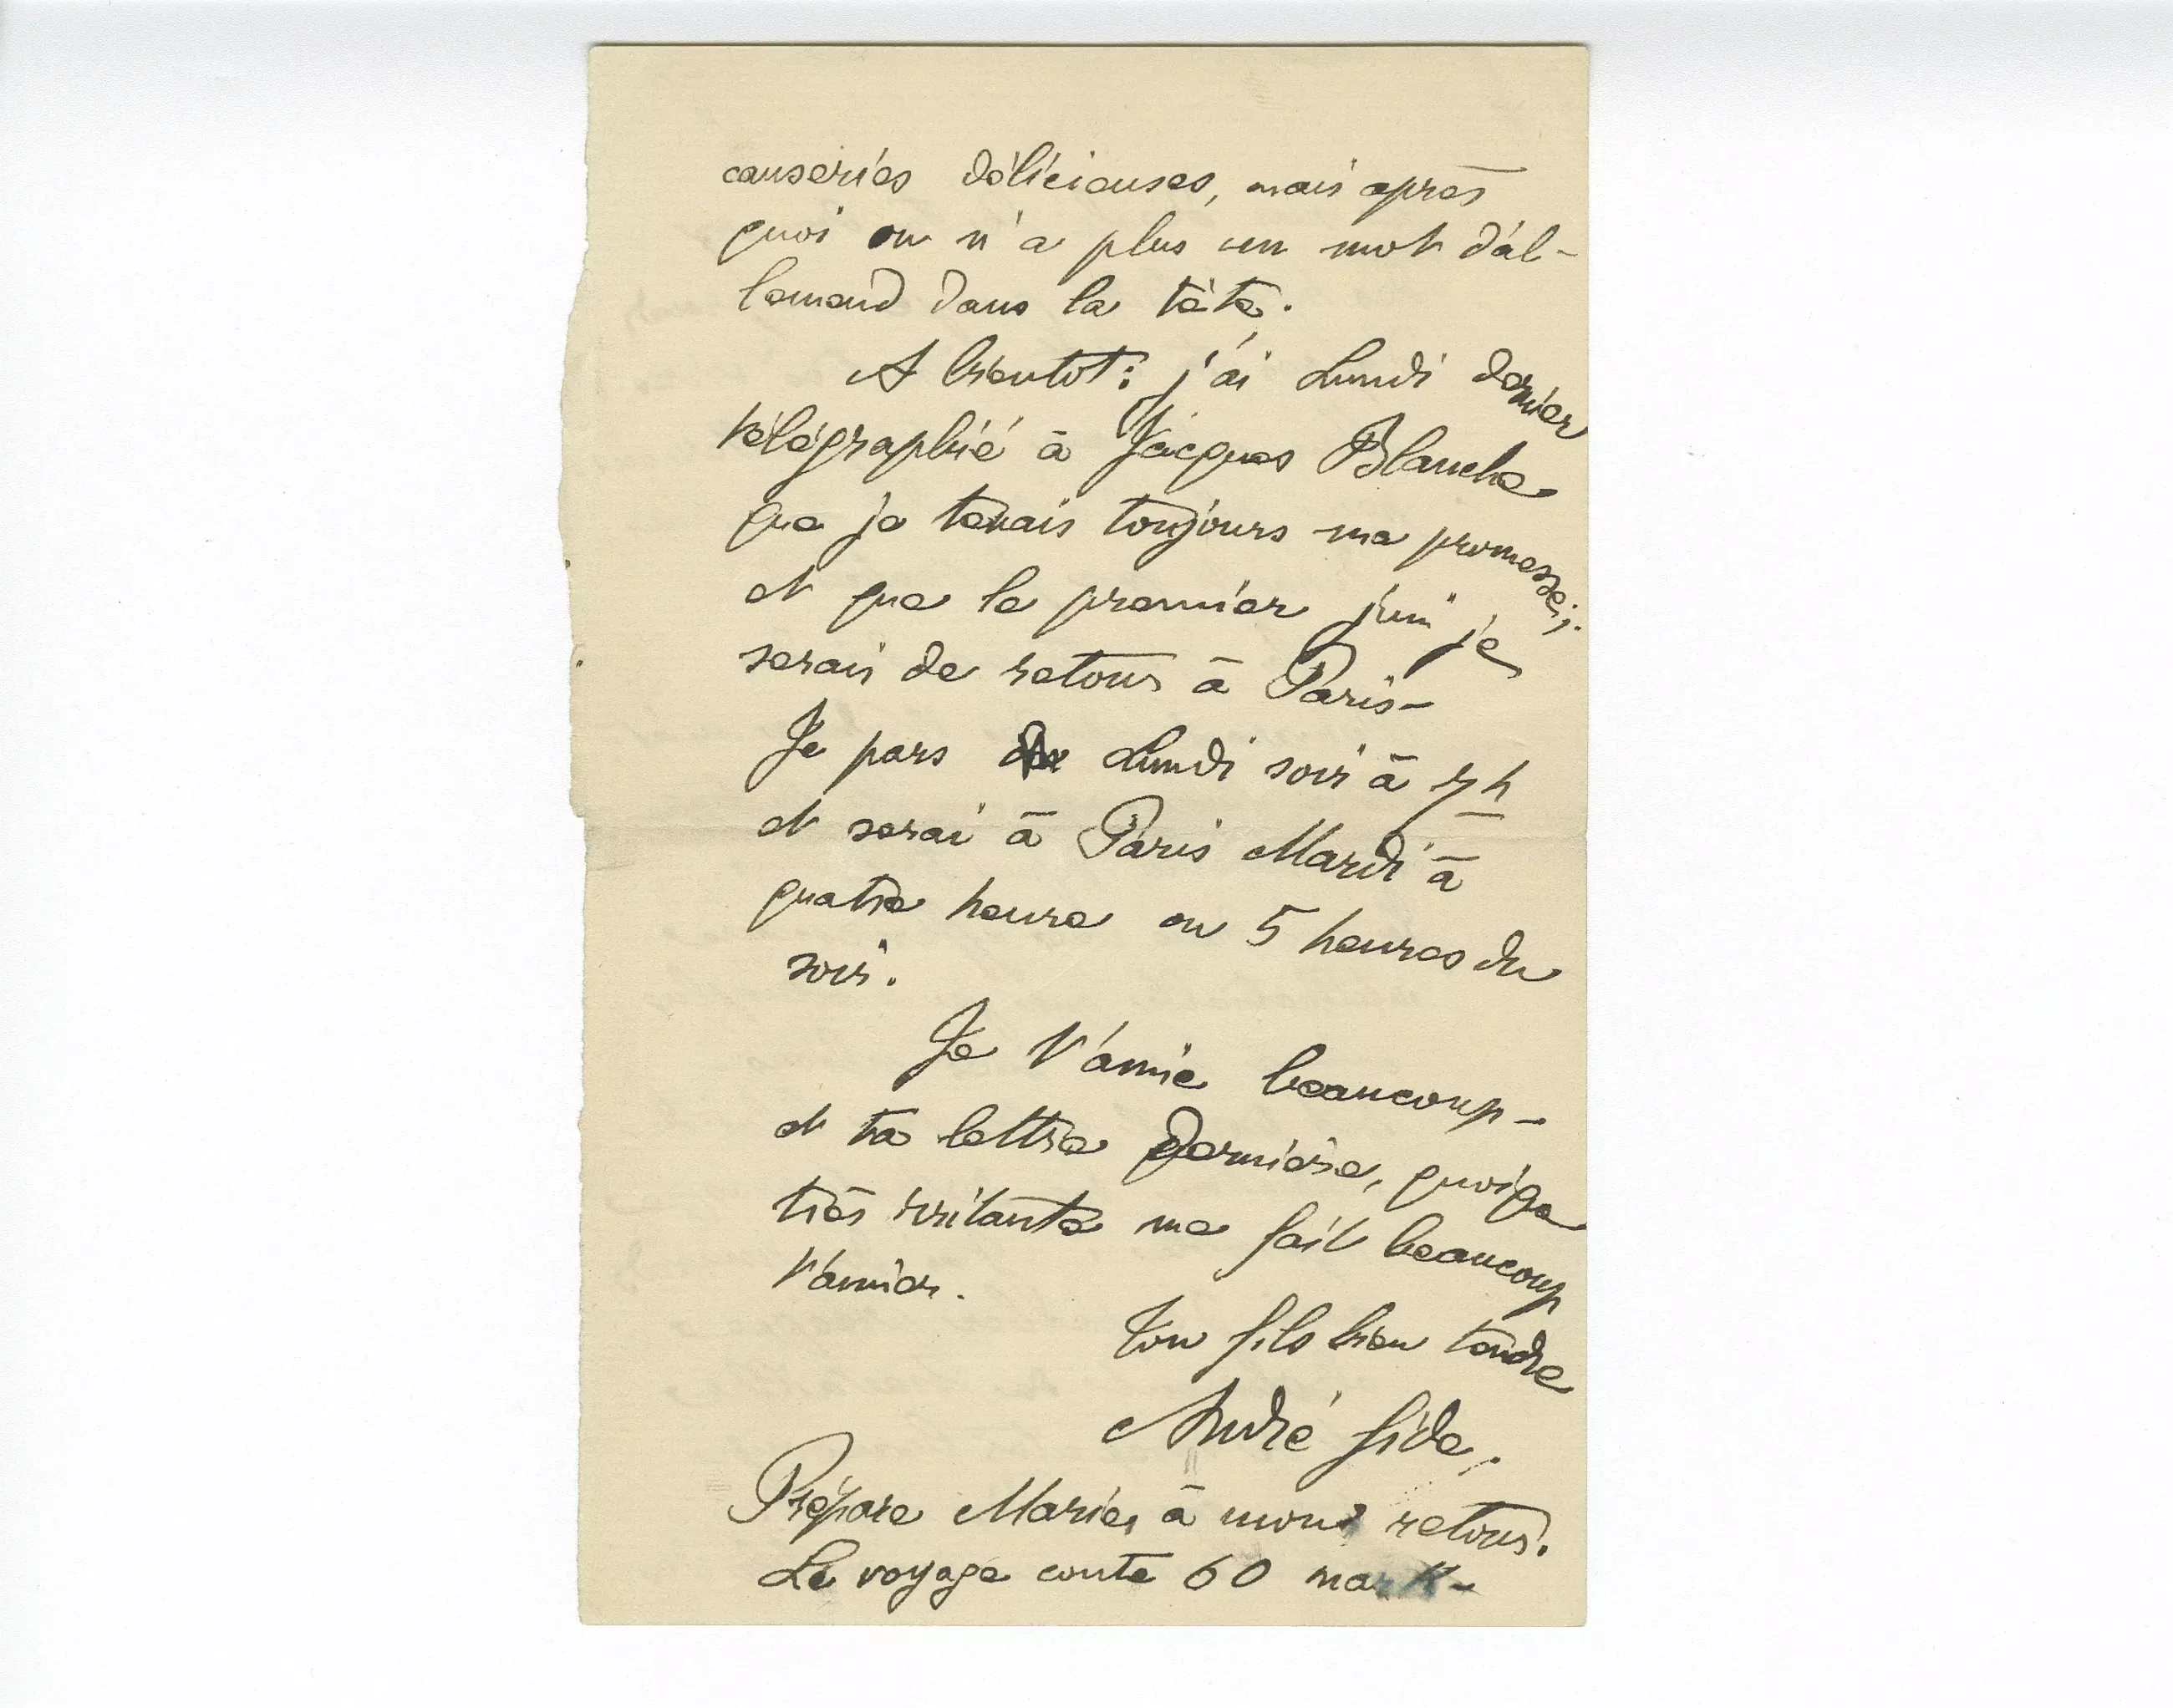 causeries délicieuses, mais après
quoi on n'a plus un mot d'al-
lemand dans la tête.
A bientot : j'ai Lundi dernier
télégraphié à Jacques Blanche
que je tenais toujours ma promesse ;
et que le premier juin je
serais de retour à Paris -
Je pars Lundi soir à 7h
et serai à Paris Mardi à
quatre heure ou 5 heures du
soir.
Je t'aime beaucoup -
et ta lettre dernière, quoique
très irritante me fait beaucoup
t'aimer.
Ton fils bien tendre
André Gide.
Prépare Marie, à mon retour.
Le voyage coute 60 mark -